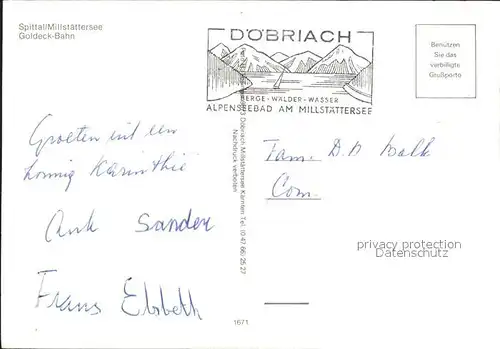 Spittal/Millstättersee
Goldeck-Bahn
DÖBRIACH
BERGE-WÄLDER-WASSER
ALPENSEEBAD AM MILLSTÄTTERSEE
Benützen
Sie das
verbilligte
Grußporto
Groeten uit een
zonnig Karinthië
Ank Sander
Frans Elsbeth
Fam. D.D
Com.
privacy protection
Datenschutz
Döbriach Millstättersee Kärnten Tel. (0 47 66) 25 27
Nachdruck verboten
1671